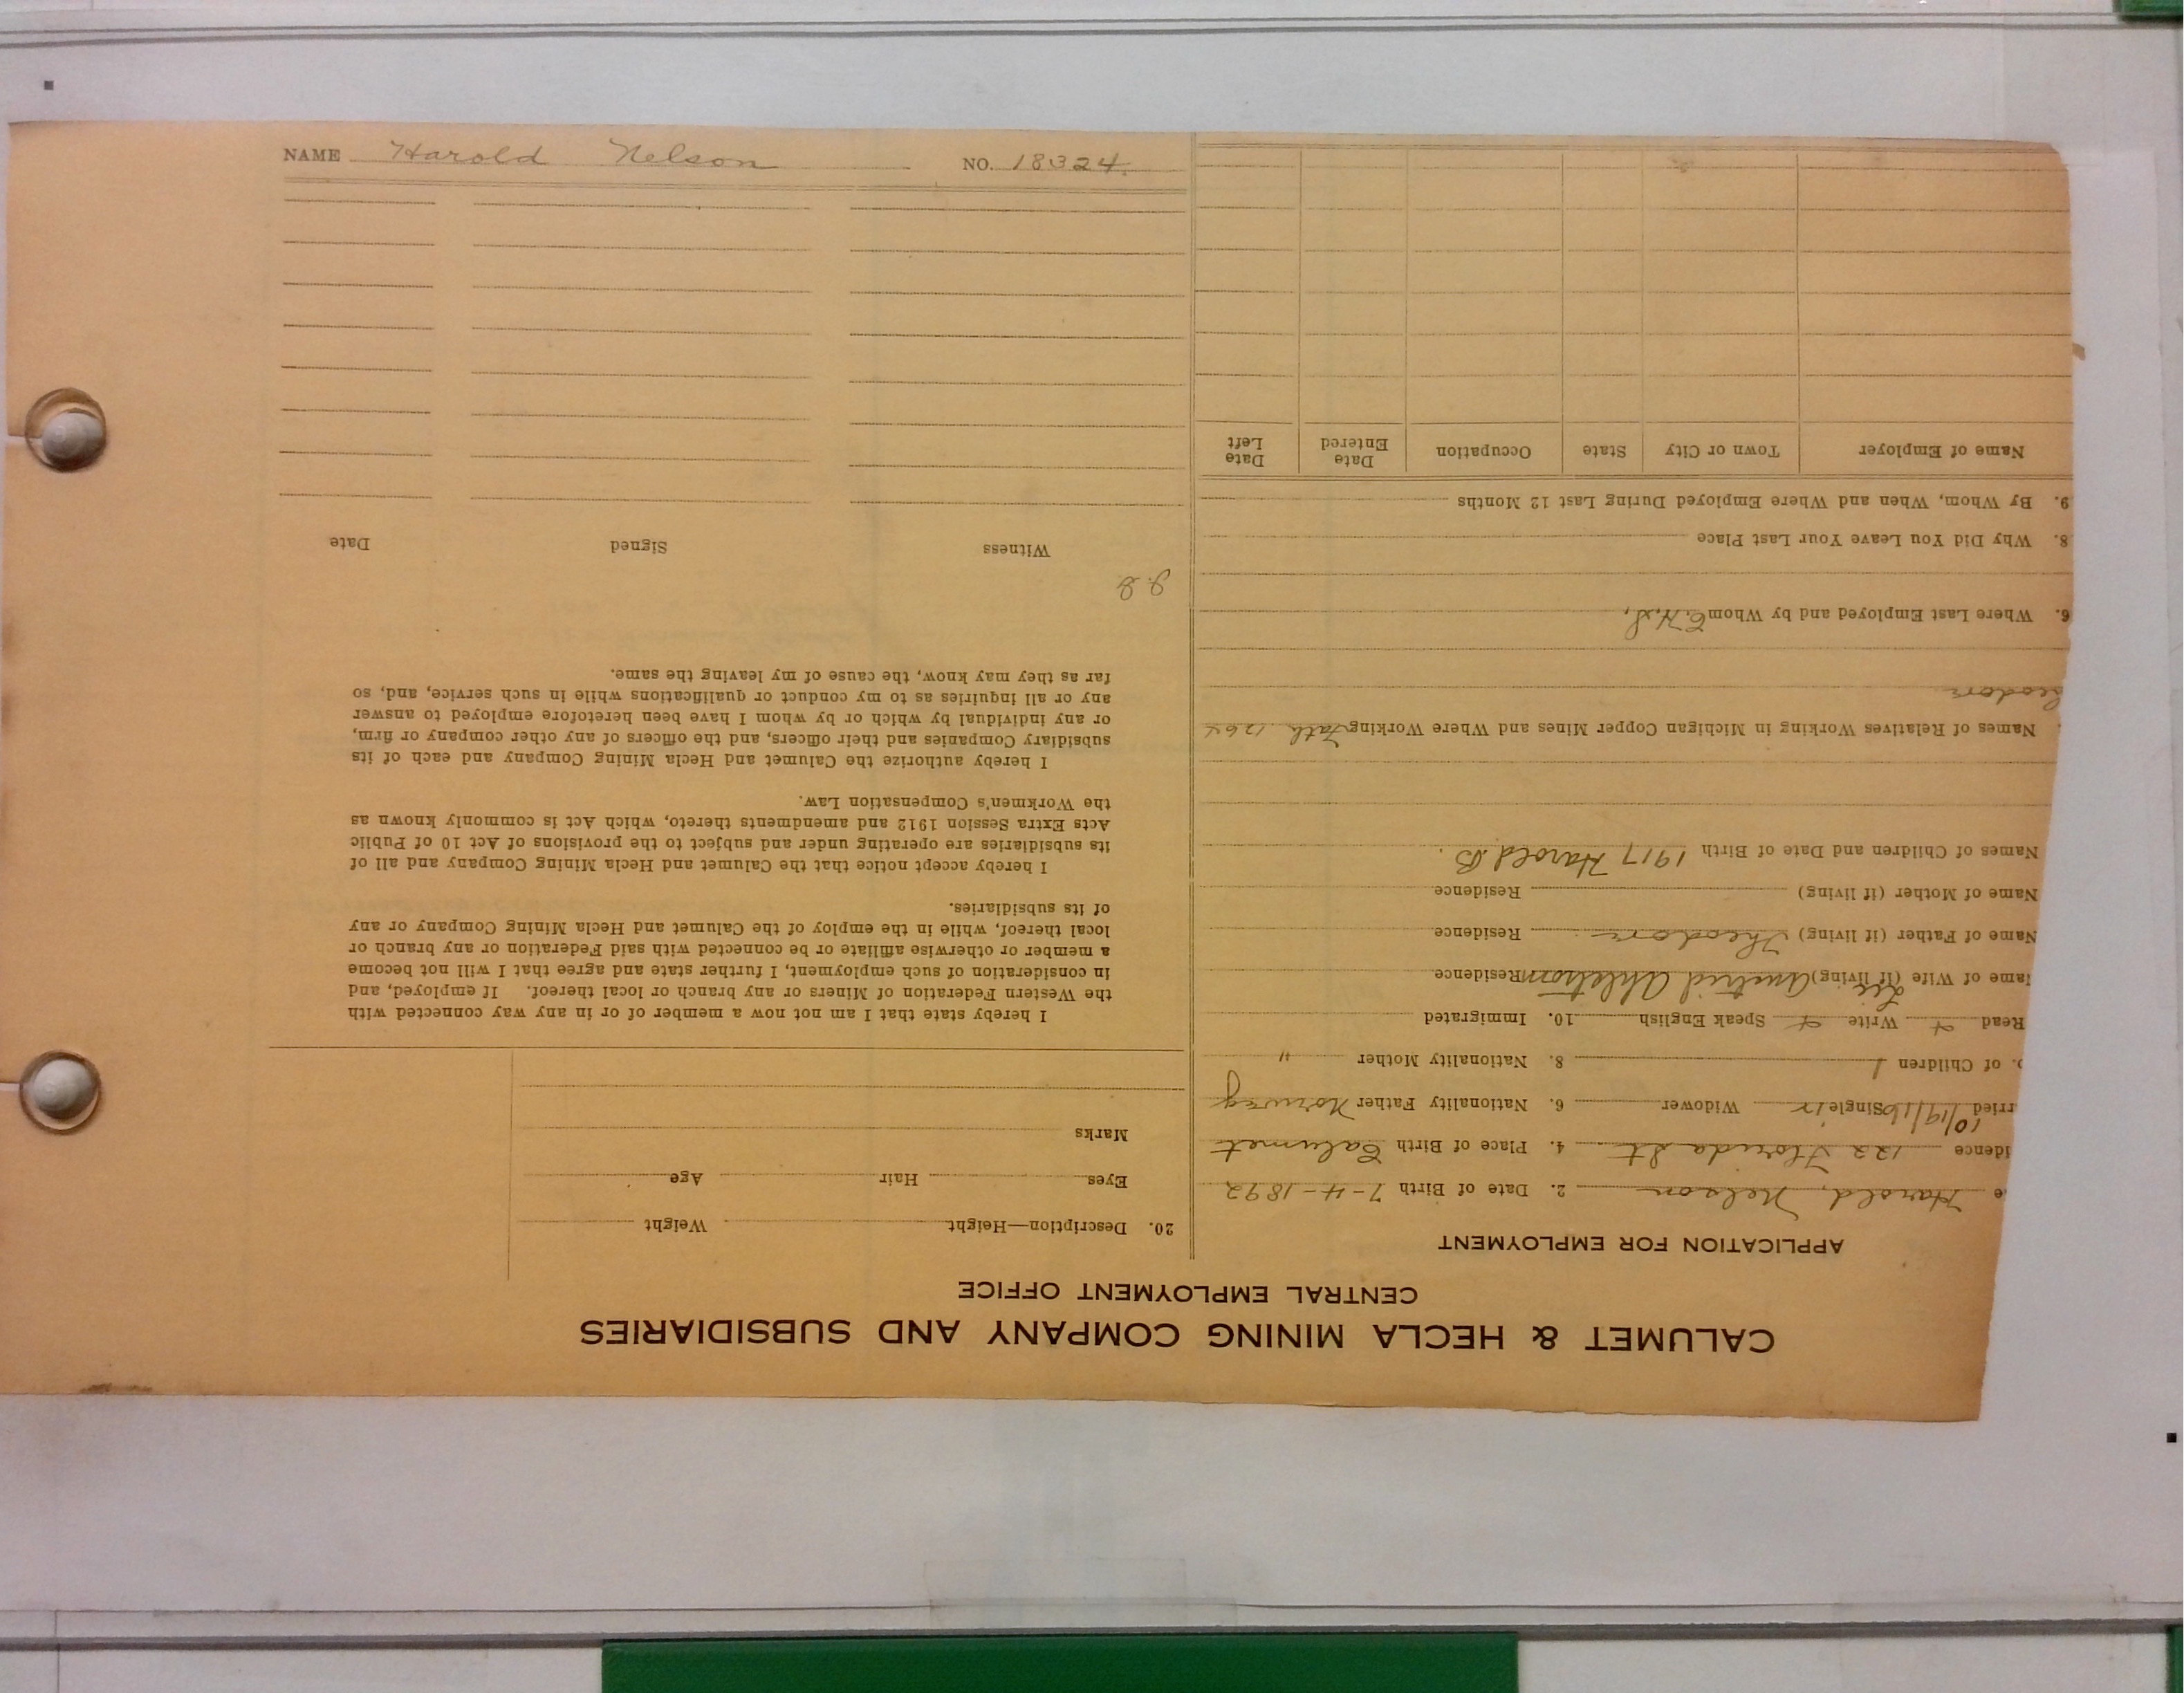 NAME Harold Nelson NO. 18324
CALUMET & HECLA MINING COMPANY AND SUBSIDIARIES
CENTRAL EMPLOYMENT OFFICE
APPLICATION FOR EMPLOYMENT
e Harold, Nelson 2. Date of Birth 7-4-1892
idence 122 Florida St. 4. Place of Birth Calumet
rried 10/19/16 Single Widower 6. Nationality Father Norway
o. of Children 1 8. Nationality Mother "
Read Write Speak English 10. Immigrated
ame of Wife (if living) Residence
Name of Father (if living) Theodore Residence
Name of Mother (if living) Residence
Names of Children and Date of Birth 1917 Harold B.
Names of Relatives Working in Michigan Copper Mines and Where Working Fath 1264
eodore
6. Where Last Employed and by Whom C.H.S.
8. Why Did You Leave Your Last Place
9. By Whom, When and Where Employed During Last 12 Months
Name of Employer Town or City State Occupation Date Entered Date Left
20. Description—Height Weight
Eyes Hair Age
Marks
I hereby state that I am not now a member of or in any way connected with
the Western Federation of Miners or any branch or local thereof. If employed, and
in consideration of such employment, I further state and agree that I will not become
a member or otherwise affiliate or be connected with said Federation or any branch or
local thereof, while in the employ of the Calumet and Hecla Mining Company or any
of its subsidiaries.
I hereby accept notice that the Calumet and Hecla Mining Company and all of
its subsidiaries are operating under and subject to the provisions of Act 10 of Public
Acts Extra Session 1912 and amendments thereto, which Act is commonly known as
the Workmen's Compensation Law.
I hereby authorize the Calumet and Hecla Mining Company and each of its
subsidiary Companies and their officers, and the officers of any other company or firm,
or any individual by which or by whom I have been heretofore employed to answer
any or all inquiries as to my conduct or qualifications while in such service, and, so
far as they may know, the cause of my leaving the same.
Witness Signed Date